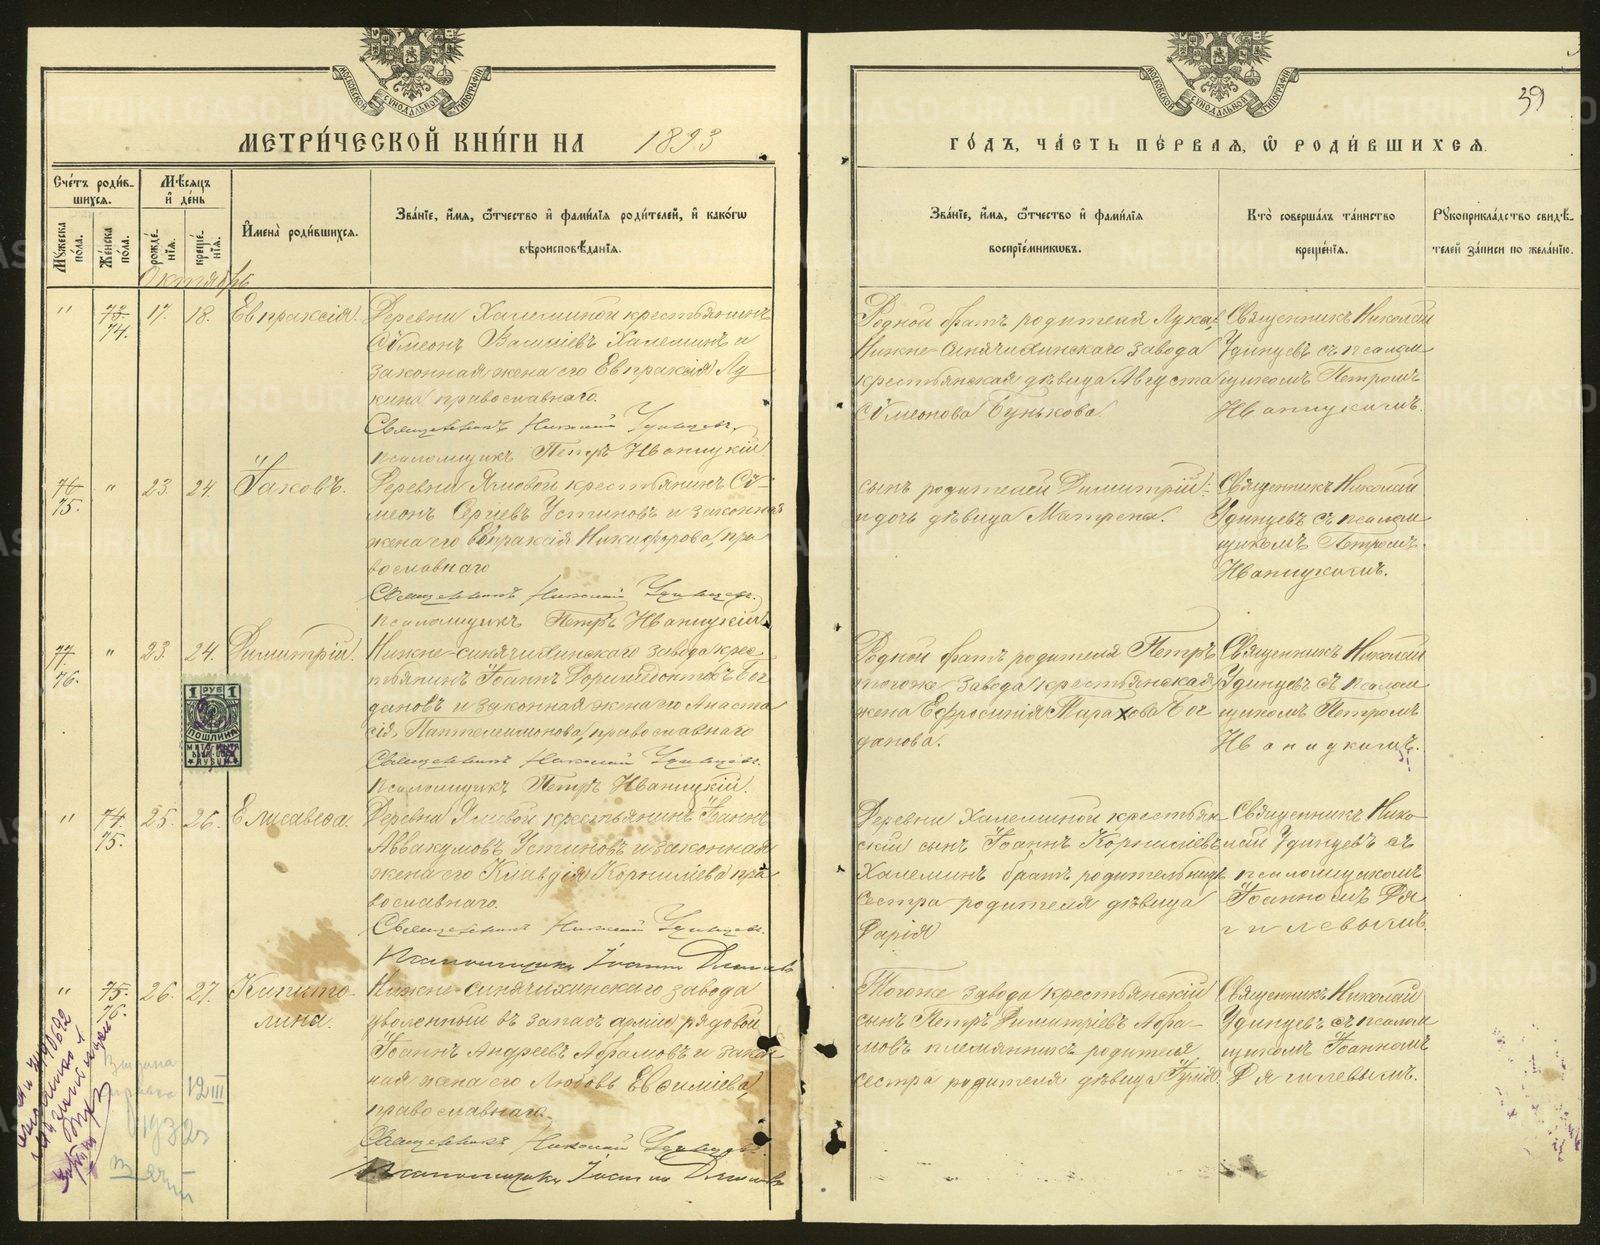 МЕТРИ́ЧЕСКОЙ КНИ́ГИ НА 1893
ГО́ДЪ, ЧА́СТЬ ПЕ́РВАѦ, Ѡ҆ РОДИ́ВШИХСѦ.
39
МОСКОВСКОЙ СѴНОДАЛЬНОЙ ТИПОГРАФІИ
МОСКОВСКОЙ СѴНОДАЛЬНОЙ ТИПОГРАФІИ
Сче́тъ роди́в-
шихсѧ.
Мѣ́сѧцъ
и҆ де́нь
Мꙋ́жеска по́ла.
Же́нска по́ла.
рожде́-нїѧ.
креще́-нїѧ.
И҆мена̀ роди́вшихсѧ.
Зва́нїе, и҆́мѧ, ѻ҆́тчество и҆ фами́лїѧ роди́телей, и҆ како́гѡ
вѣроисповѣ́данїѧ.
Зва́нїе, и҆́мѧ, ѻ҆́тчество и҆ фами́лїѧ
воспрїе́мникѡвъ.
Кто̀ соверша́лъ та́инство
креще́нїѧ.
Рꙋкоприкла́дство свидѣ́-
телей за́писи по жела́нїю.
Октябрь
" 73. 74. 17. 18. Евпраксія.
Деревни Халеминой крестьянинъ
Сѵмеонъ Василіевъ Халеминъ и
законная жена его Евпраксія Лу
кина православнаго.
Священникъ Николай Удинцевъ.
псаломщикъ Петръ Иваницкій
Родной братъ родителя Лука,
Нижне-синячихинскаго завода
крестьянская дѣвица Августа
Сѵмеонова Бунькова
Священникъ Николай
Удинцевъ съ псалом
щикомъ Петромъ
Иваницкимъ.
76 75. " 23. 24. Іаковъ.
Деревни Ямовой крестьянинъ Сѵ-
меонъ Сергіевъ Устиновъ и законная
жена его Евпраксія Никифорова, пра
вославнаго
Священникъ Николай Удинцевъ.
псаломщикъ Петръ Иваницкій.
сынъ родителей Димитрій
и дочь дѣвица Матрена.
Священникъ Николай
Удинцевъ съ псалом
щикомъ Петромъ
Иваницкимъ.
77. 76. " 23. 24. Димитрій.
Нижне-синячихинскаго завода крес
тьянинъ Іоаннъ Доримедонтовъ Бог
дановъ и законная жена его Анаста
сія Пантелимонова, православнаго
Священникъ Николай Удинцевъ.
псаломщикъ Петръ Иваницкій.
Родной братъ родителя Петръ
тогоже завода крестьянская
жена Ефросинія Тарахова Бог
данова.
Священникъ Николай
Удинцевъ съ псалом
щикомъ Петромъ
Иваницкимъ.
1 РУБ 1
ПОШЛИНА
" 74 75. 25. 26. Елисавеѳа.
Деревни Ямовой крестьянинъ Іоаннъ
Аввакумовъ Устиновъ и законная
жена его Клавдія Корниліева пра
вославнаго.
Священникъ Николай Удинцевъ.
Псаломщикъ Іоаннъ
Деревни Халеминой крестьян
скій сынъ Іоаннъ Корниліевъ
Халеминъ братъ родительницы
сестра родителя дѣвица
Дарія
Священникъ Нико
лай Удинцевъ съ
псаломщикомъ
Іоанномъ Дя
гилевымъ.
" 75. 76. 26. 27. Капито-
лина.
Нижне-синячихинскаго завода
уволенный въ запасъ арміи рядовой
Іоаннъ Андреевъ Абрамовъ и закон
ная жена его Любовь Евѳиміева,
православнаго.
Священникъ Николай Удинцевъ.
Псаломщикъ Іоаннъ
Тогоже завода крестьянскій
сынъ Петръ Димитріевъ Абра-
мовъ племянникъ родителя
сестра родителя дѣвица
Священникъ Николай
Удинцевъ съ псалом
щикомъ Іоанномъ
Дягилевымъ.
12 III
1932